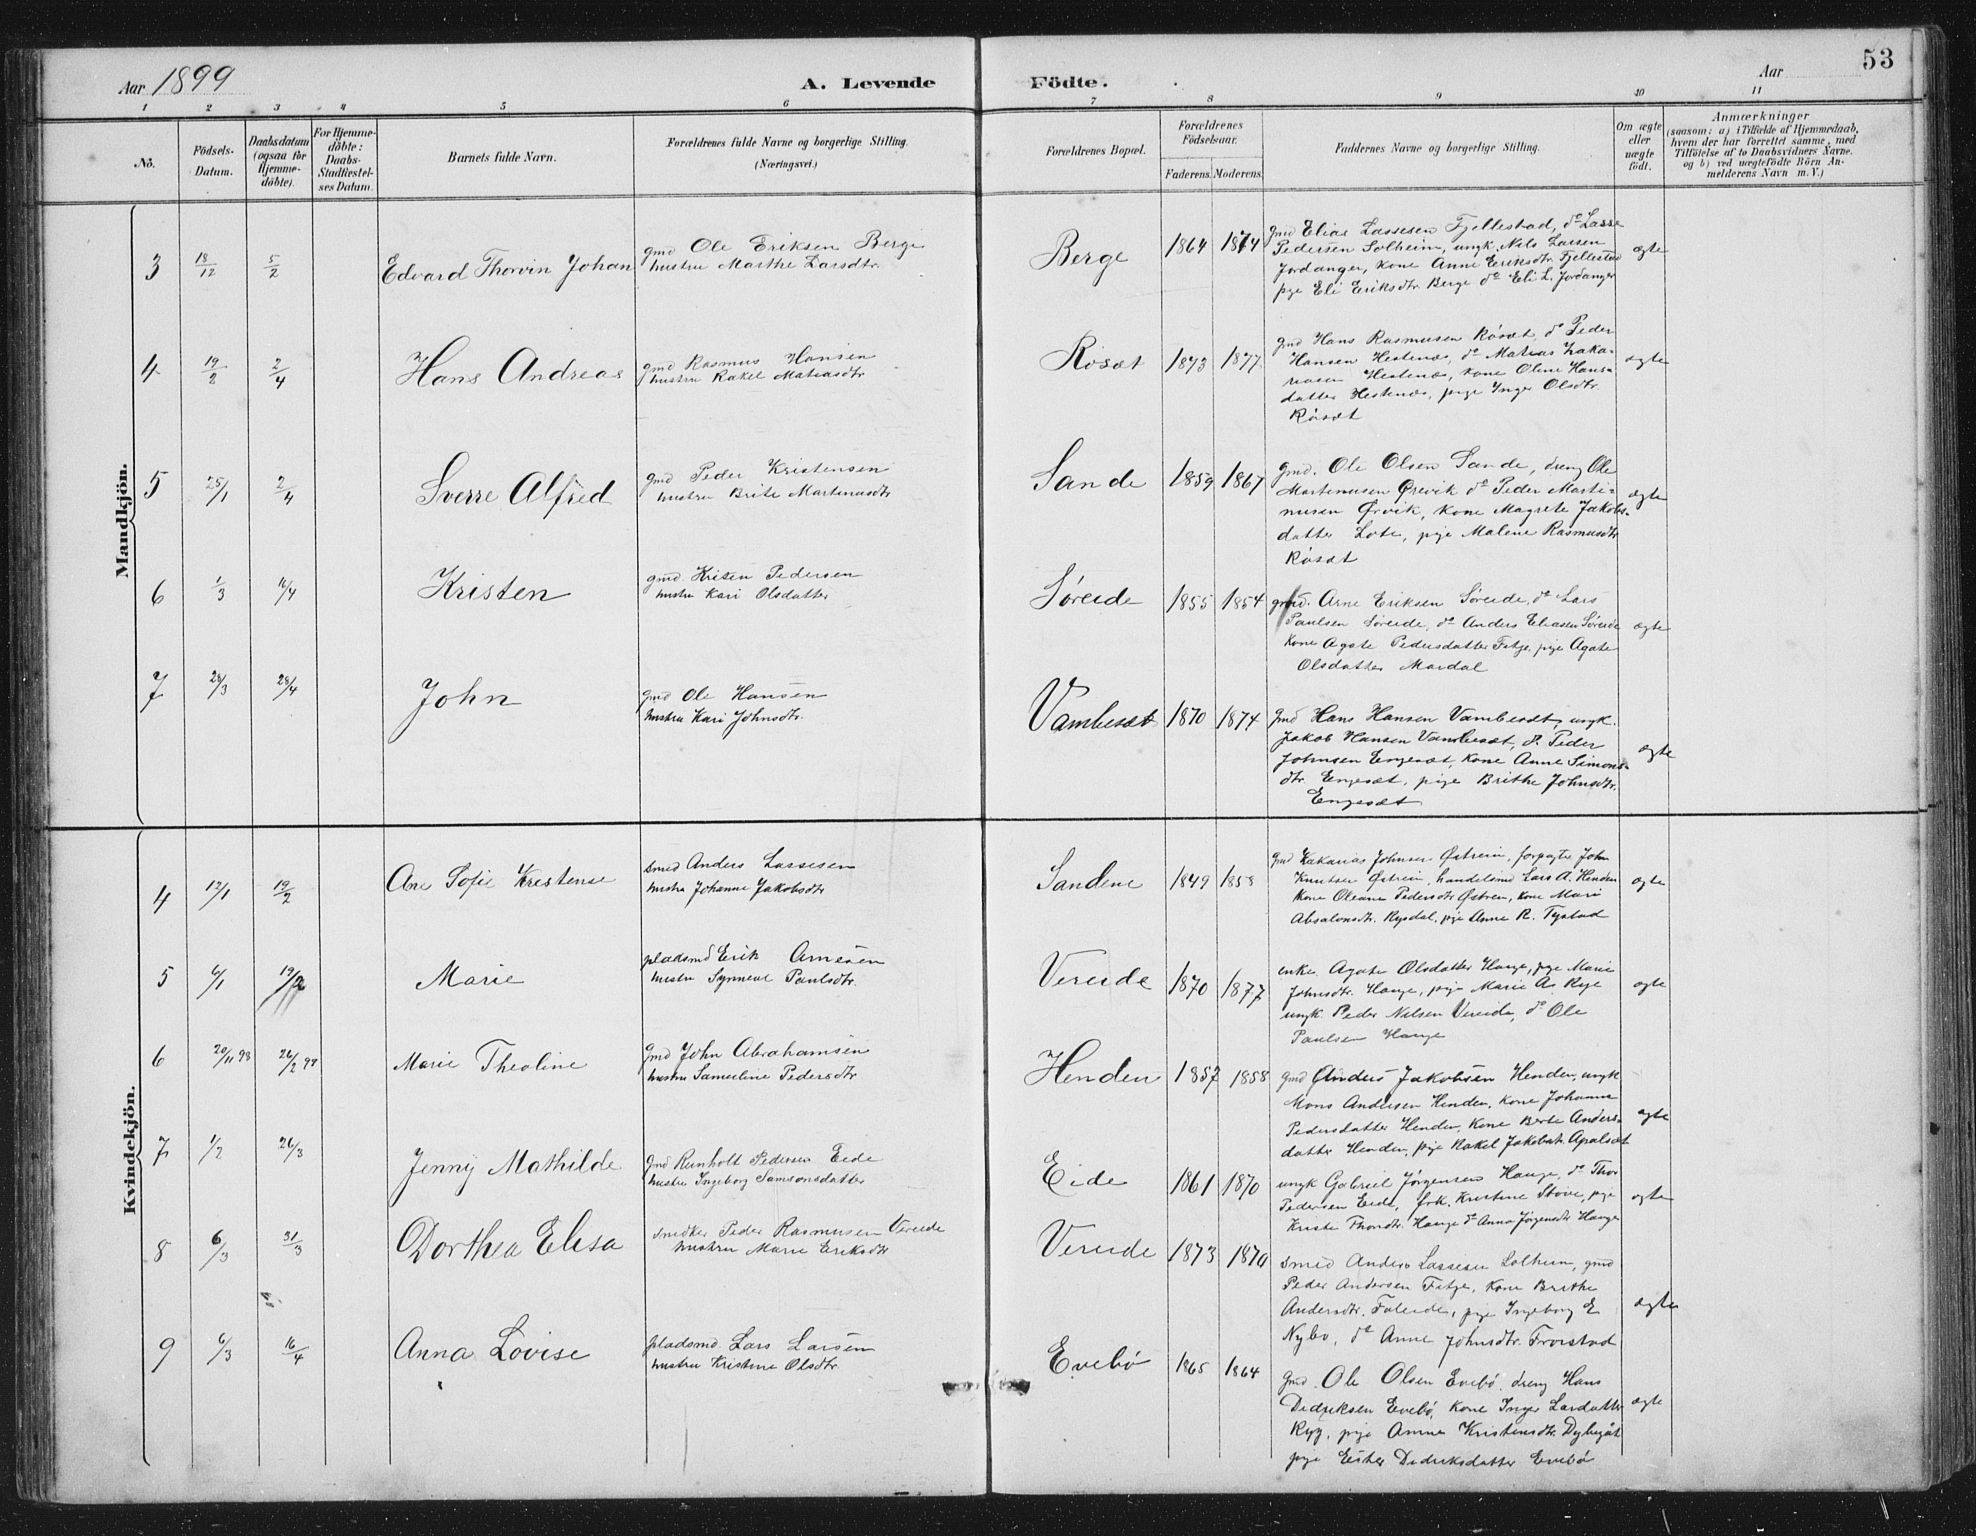 Aar 1899
A. Levende Födte.
Aar
53
1 2 3 4 5 6 7 8 9 10 11
No.
Födsels-Datum.
Daabsdatum (ogsaa for Hjemme-döbte).
For Hjemme-döbte: Daabs-Stadfæstel-ses Datum.
Barnets fulde Navn.
Forældrenes fulde Navne og borgerlige Stilling. (Næringsvei.)
Forældrenes Bopæl.
Forældrenes Födselsaar.
Faderens. Moderens.
Faddernes Navne og borgerlige Stilling.
Om ægte eller uægte födt.
Anmærkninger
(saasom: a) i Tilfælde af Hjemmedaab,
hvem der har forrettet samme, med
Tilföielse af to Daabsvidners Navne.
og b) ved uægtefödte Börn An-
melderens Navn m. V.)
Mandkjön.
3 18/12 5/2 Edvard Thorvin Johan
gmd Ole Eriksen Berge
hustru Marthe Larsdtr.
Berge 1864 1874
gmd Elias Lassesen Fjellestad, do Lasse
Pedersen Solheim, ungk. Nils Larsen
Jordanger, kone Anne Eriksdtr. Fjellestad
pige Eli Eriksdtr Berge do Eli L. Jordanger
ægte
4 19/2 2/4 Hans Andreas
gmd Rasmus Hansen
hustru Rakel Matiasdtr
Røsæt 1873 1877
gmd Hans Rasmusen Røsæt, do Peder
Hansen Hestenæs, do Matias Zaka-
riasen Hestenæs, kone Oline Hans-
datter Hestenæs, pige Inger Olsdtr.
Røsæt
ægte
5 25/1 2/4 Sverre Alfred
gmd Peder Kristensen
hustru Brite Martinusdtr
Sande 1859 1867
gmd. Ole Olsen Sande, dreng Ole
Martinusen Ørevik do Peder Marti-
nusen Ørvik, kone Magrete Jakobs-
datter Lote, pige Malene Rasmusdtr
Røsæt
ægte
6 1/3 16/4 Kristen
gmd. Kristen Pedersen
hustru Kari Olsdatter
Søreide 1855 1854
gmd. Arne Eriksen Søreide, do Lars
Paulsen Søreide, do Anders Eliasen Søreide
kone Agate Pedersdatter Fitje, pige Agate
Olsdatter Mardal
ægte
7 28/3 28/4 John
gmd Ole Hansen
hustru Kari Johnsdtr.
Vambesæt 1870 1874
gmd Hans Hansen Vambesæt, ungk.
Jakob Hansen Vambesæt, do Peder
Johnsen Engesæt, kone Anne Simons-
dtr. Engesæt, pige Brithe Johnsdtr.
Engesæt
ægte
Kvindekjön.
4 12/1 19/2 Ane Sofie Kristense
smed Anders Lassesen
hustru Johanne Jakobsdtr
Sandene 1849 1858
gmd Zakarias Johnsen Østrein, forpagter John
Knutsen Østrein, handelsmd Lars A. Henden
kone Oleane Pedersdtr Østrein, kone Mari
Absalonsdtr. Rysdal, pige Anne R. Tystad
ægte
5 6/1 19/2 Marie
pladsmd Erik Arnesen
hustru Synneve Paulsdtr.
Vereide 1870 1877
enke. Agate Olsdatter Hauge, pige Marie
Johnsdtr. Hauge, pige Marie As Rye
ungk Peder Nilsen Vereide, do Ole
Paulsen Hauge
ægte
6 20/11 98 26/2 99 Marie Theoline
gmd John Abrahamsen
hustru Samueline Pedersdtr
Henden 1857 1858
gmd Anders Jakobsen Henden, ungk
Mons Andersen Henden, kone Johanne
Pedersdatter Henden, kone Berte Anders-
datter Henden, pige Rakel Jakobsdtr Apalsæt
ægte
7 1/2 26/3 Jenny Mathilde
gmd Reinholt Pedersen Eide
hustru Ingeborg Samsonsdatter
Eide 1861 1870
ungk Gabriel Jørgensen Hauge, do Thor
Pedersen Eide, frk. Kristine Støve, pige
Kriste Thordtr. Hauge do Anna Jørgensdtr Hauge
ægte
8 6/3 31/3 Dorthea Elisa
snedker Peder Rasmusen Vereide
hustru Marie Eriksdtr
Vereide 1873 1870
smed Anders Lassesen Solheim, gmd
Peder Andersen Fitje, kone Brithe
Andersdtr. Faleide, pige Ingeborg E
Nybo, do Anne Johnsdtr. Frøistad
ægte
9 6/3 16/4 Anna Lovise
pladsmd Lars Larsen
hustru Kristine Olsdtr
Evebø 1865 1864
gmd. Ole Olsen Evebø, dreng Hans
Didriksen Evebø, kone Inger Larsdatter
Ryg, pige Anna Kristensdtr. Dybegåt
pige Ester Didriksdatter Evebø
ægte